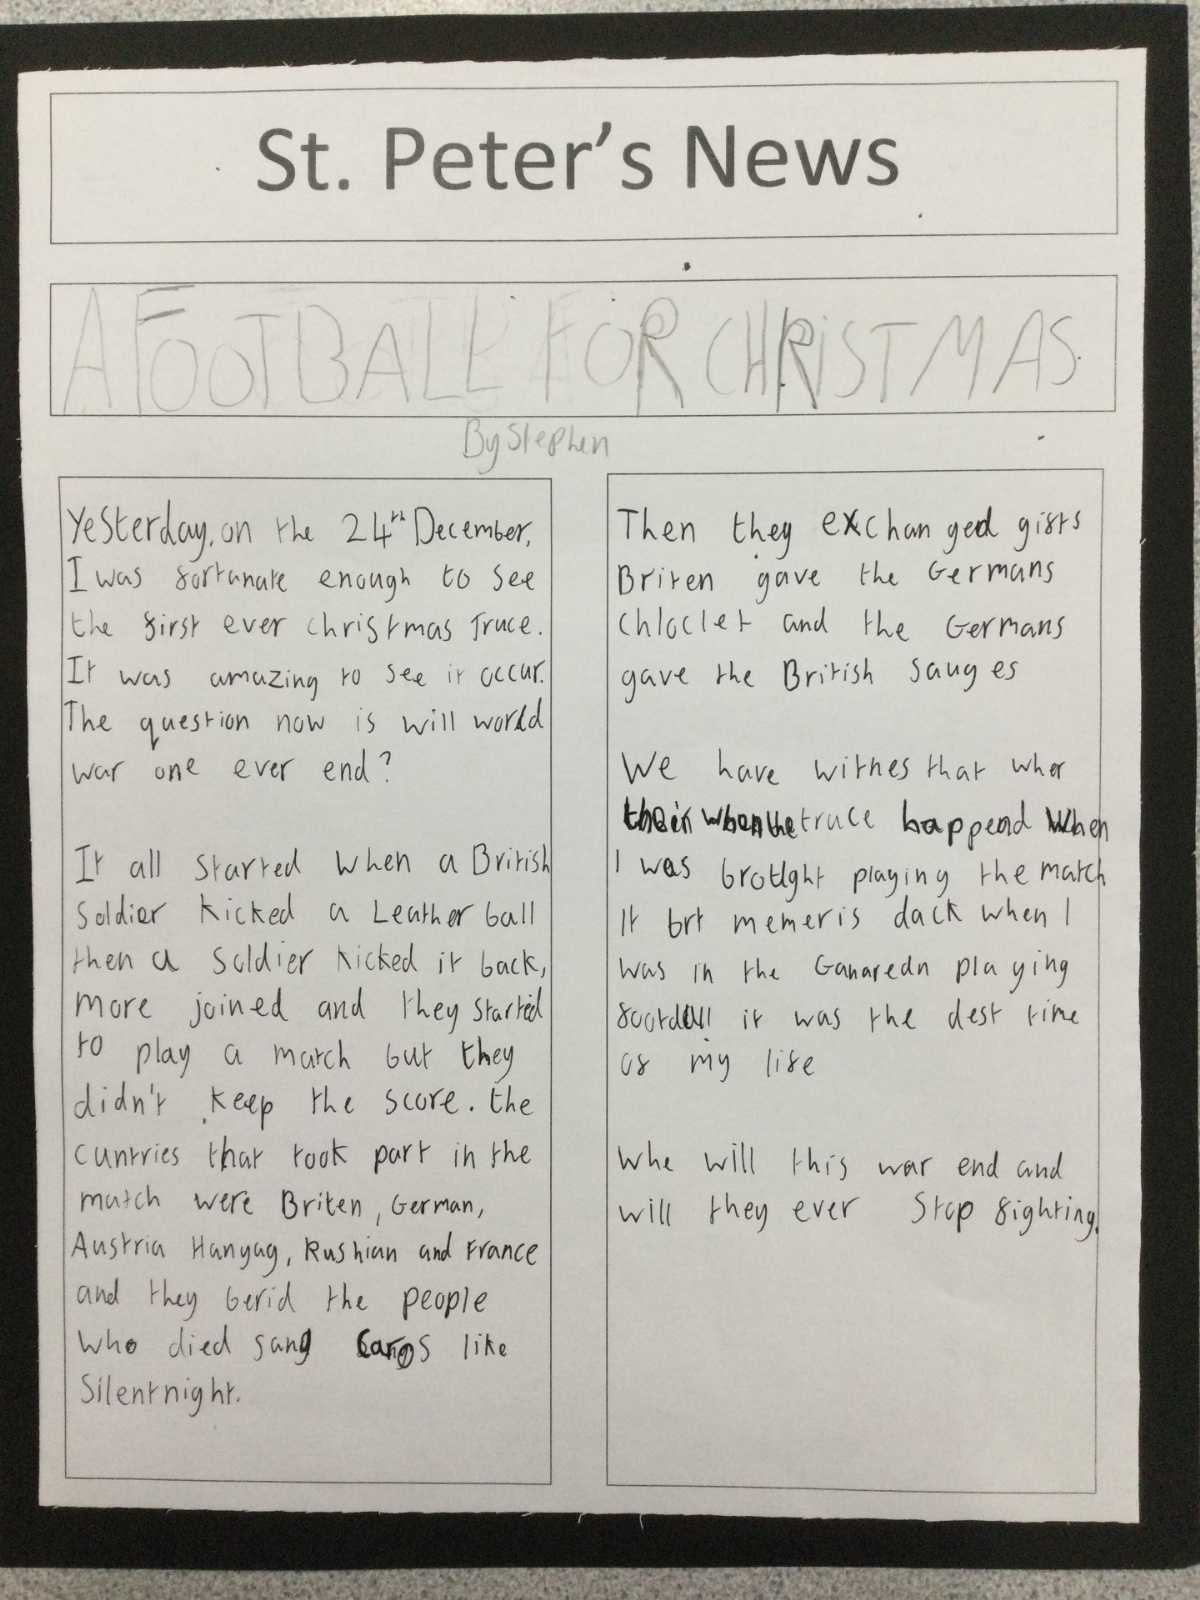 St. Peter's News
A FOOTBALL FOR CHRISTMAS
By Stephen
Yesterday, on the 24th December,
I was fortanate enough to see
the first ever christmas Truce.
It was amazing to see it occur.
The question now is will world
war one ever end?
It all started when a British
Soldier kicked a Leather ball
then a soldier kicked it back,
more joined and they started
to play a match but they
didn't keep the score. the
cuntries that took part in the
match were Briten, German,
Austria Hanyag, Rushian and France
and they berid the people
who died sang like
Silentnight.
Then they exchanged gifts
Briten gave the Germans
Chloclet and the Germans
gave the British Sauges
We have withes that wher
truce happend When
I was brotlght playing the match
It brt memeris dack when I
was in the Ganaredn playing
footdall it was the dest time
of my life
Whe will this war end and
will they ever stop fighting.